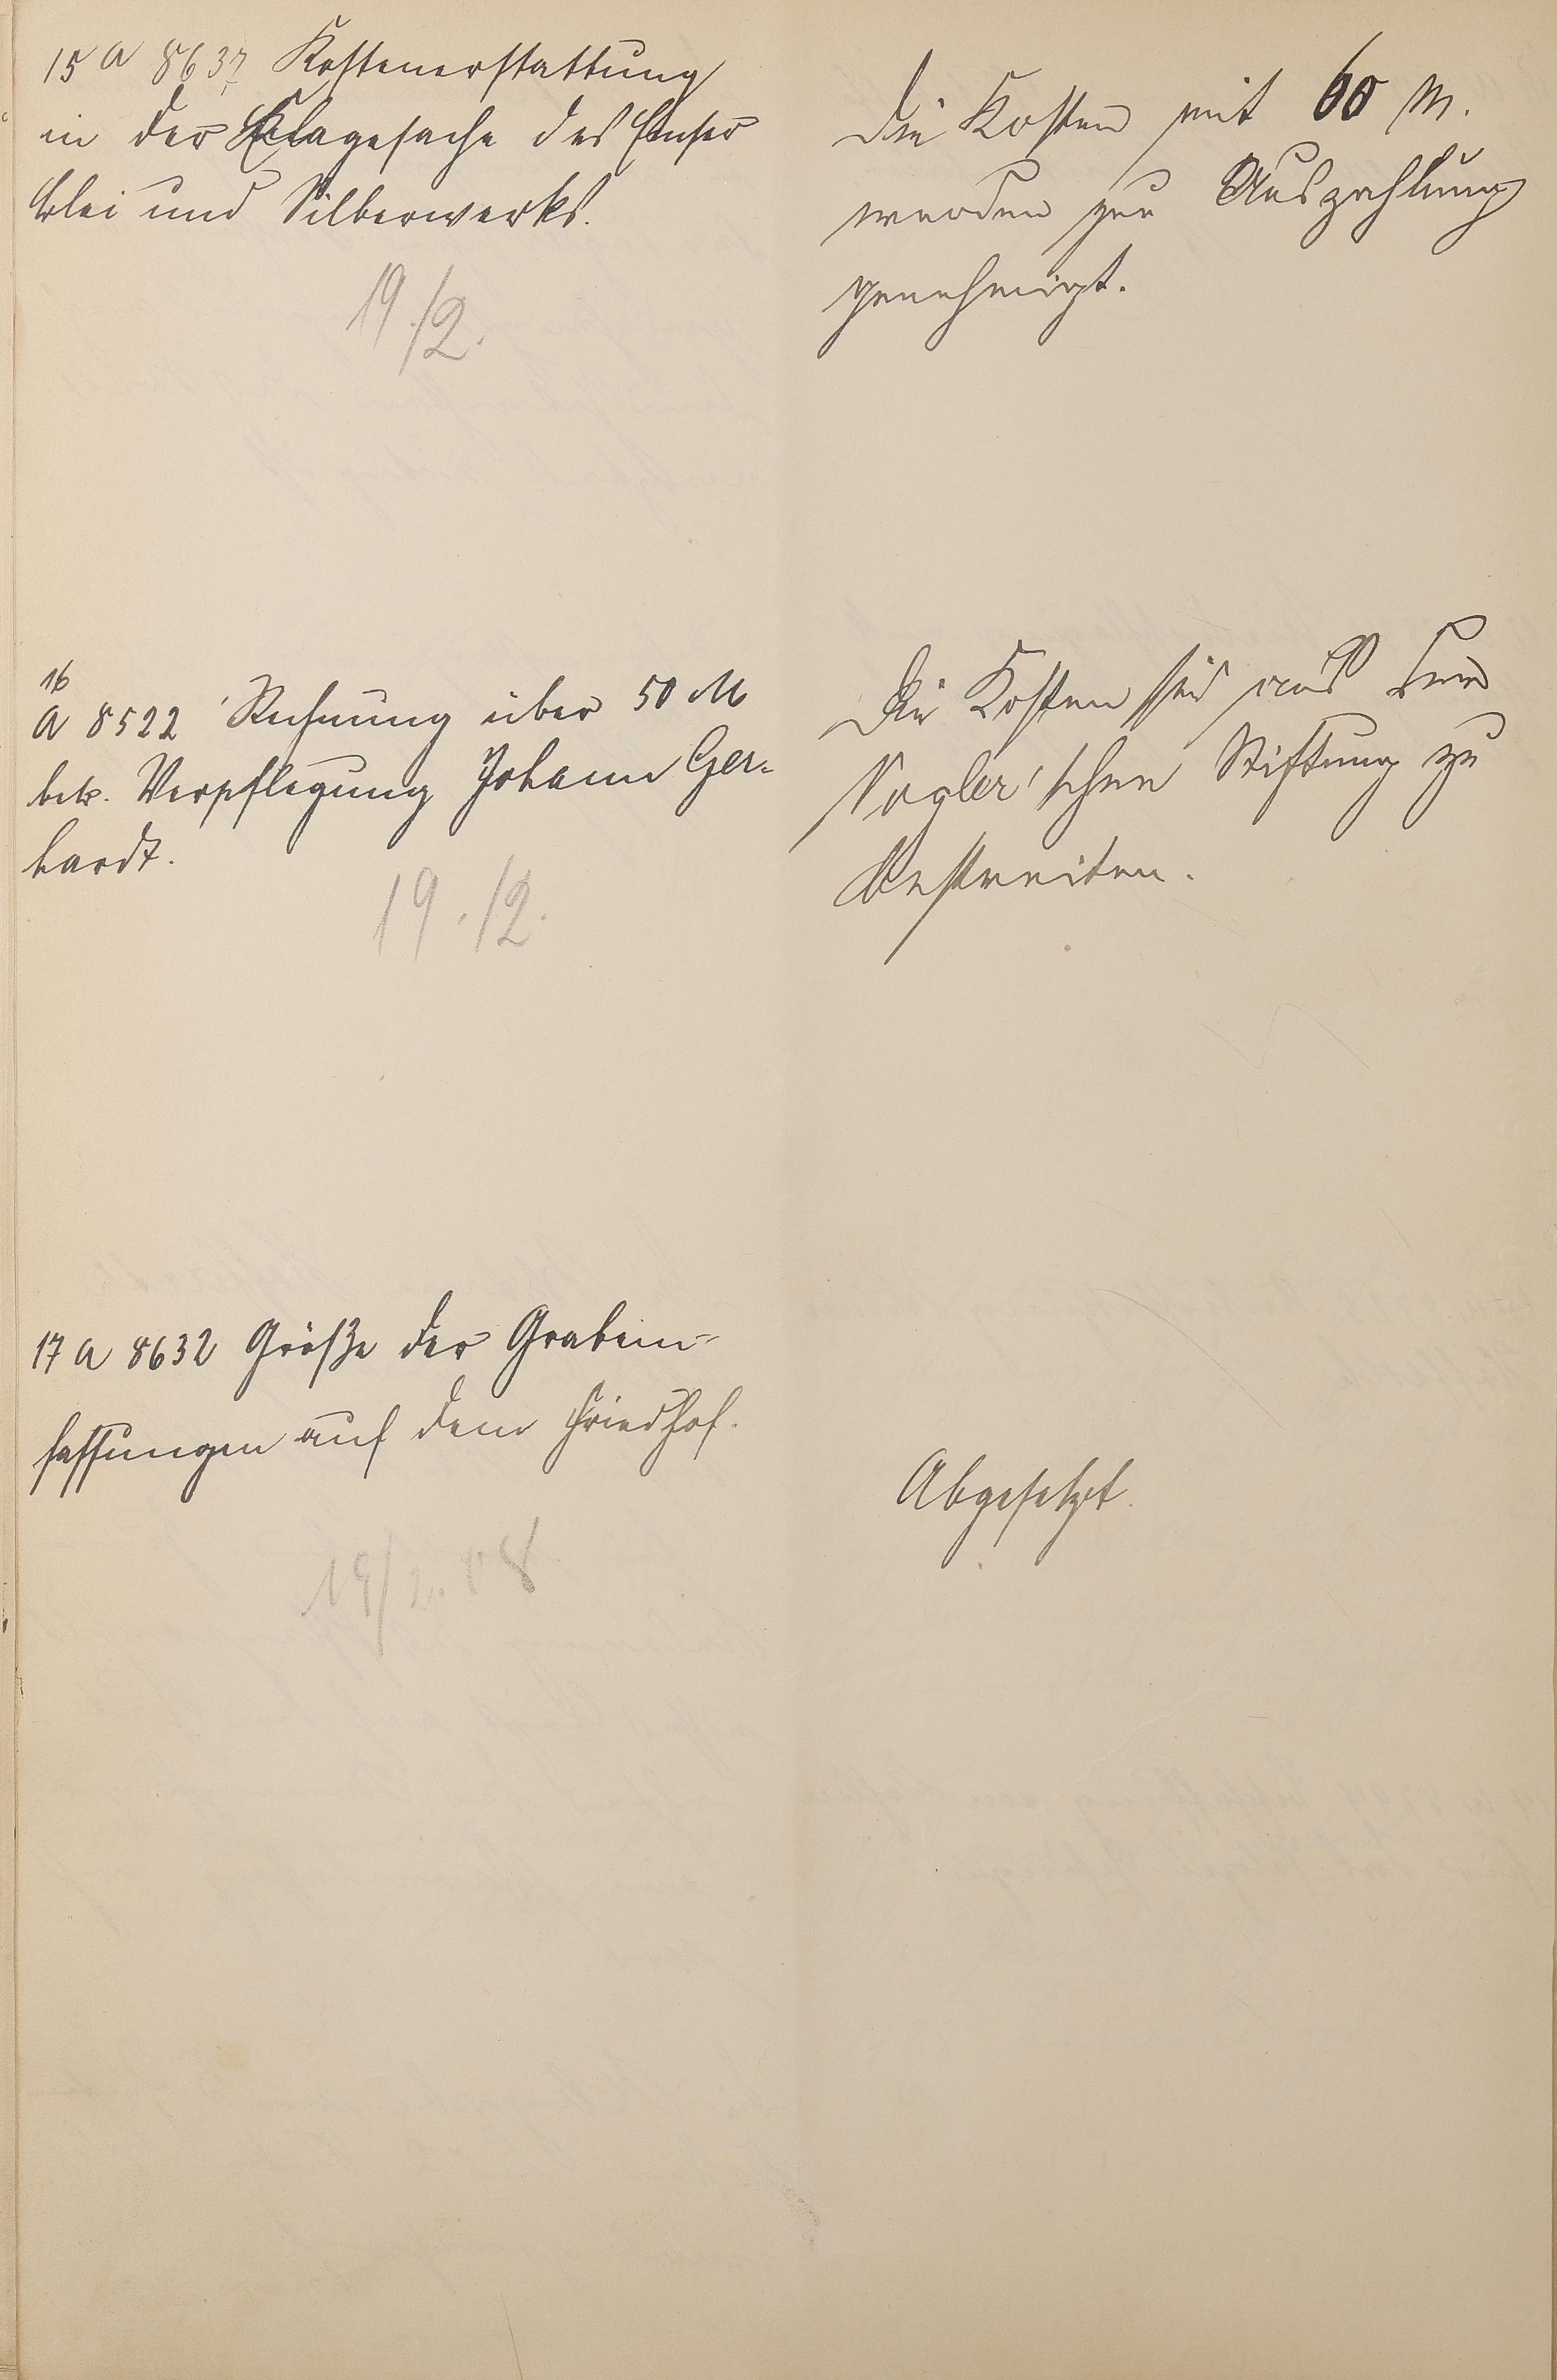 15 A 8637 Kostenerstattung
in der Klagesache des Emser
Blei und Silberwerks.
19./2.
Die Kosten mit 60 M.
werden zur Auszahlung
genehmigt.
16
A 8522 Rechnung über 50 M
betr. Verpflegung Johann Ger-
hardt.
19./2.
Die Kosten sind aus der
Vogler'schen Stiftung zu
bestreiten.
17 A 8632 Größe der Grabein-
fassungen auf dem Friedhof.
19/2.08
Abgesetzt.